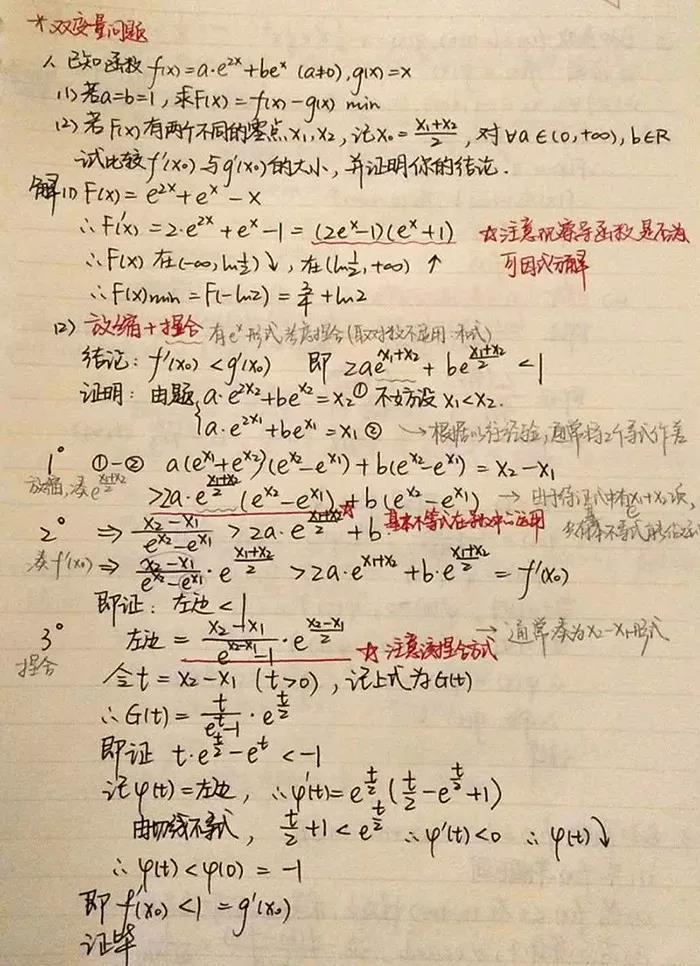 * 双变量问题
1. 已知函数 f(x)=a·e^{2x}+be^x (a≠0), g(x)=x
(1) 若a=b=1, 求F(x)=f(x)-g(x) min
(2) 若F(x)有两个不同的零点x₁,x₂, 记x₀=\frac{x₁+x₂}{2}, 对∀a∈(0,+∞), b∈R
试比较f'(x₀)与g'(x₀)的大小, 并证明你的结论.
解(1) F(x)=e^{2x}+e^x-x
∴F'(x)=2·e^{2x}+e^x-1=(2e^x-1)(e^x+1) ☆注意观察导函数是否为
可因式分解
∴F(x)在(-∞,ln\frac{1}{2})↓, 在(ln\frac{1}{2},+∞)↑
∴F(x)min=F(-ln2)=\frac{3}{4}+ln2
(2) 放缩+捏合 有e^x形式考虑捏合(取对数不适用:和式)
结论: f'(x₀)<g'(x₀) 即 2ae^{x₁+x₂}+be^{\frac{x₁+x₂}{2}}<1
证明: 由题{a·e^{2x₂}+be^{x₂}=x₂① 不妨设x₁<x₂.
a·e^{2x₁}+be^{x₁}=x₁② →根据以往经验,通常将2个等式作差
1° ①-② a(e^{x₁}+e^{x₂})(e^{x₂}-e^{x₁})+b(e^{x₂}-e^{x₁})=x₂-x₁
放缩,凑e^{\frac{x₁+x₂}{2}} >2a·e^{\frac{x₁+x₂}{2}}(e^{x₂}-e^{x₁})+b(e^{x₂}-e^{x₁}) →由于待证式中有x₁+x₂项,
☆基本不等式在导数中的运用
2° ⇒\frac{x₂-x₁}{e^{x₂}-e^{x₁}}>2a·e^{\frac{x₁+x₂}{2}}+b
凑f'(x₀) ⇒\frac{x₂-x₁}{e^{x₂}-e^{x₁}}·e^{\frac{x₁+x₂}{2}}>2a·e^{x₁+x₂}+b·e^{\frac{x₁+x₂}{2}}=f'(x₀)
即证: 左边<1
3° 左边=\frac{x₂-x₁}{e^{x₂-x₁}-1}·e^{\frac{x₂-x₁}{2}} →通常凑为x₂-x₁形式
捏合 ☆注意该捏合方式
令t=x₂-x₁(t>0), 记上式为G(t)
∴G(t)=\frac{t}{e^t-1}·e^{\frac{t}{2}}
即证 t·e^{\frac{t}{2}}-e^t<-1
记φ(t)=左边, ∴φ'(t)=e^{\frac{t}{2}}(\frac{t}{2}-e^{\frac{t}{2}}+1)
由切线不等式, \frac{t}{2}+1<e^{\frac{t}{2}} ∴φ'(t)<0 ∴φ(t)↓
∴φ(t)<φ(0)=-1
即f'(x₀)<1=g'(x₀)
证毕